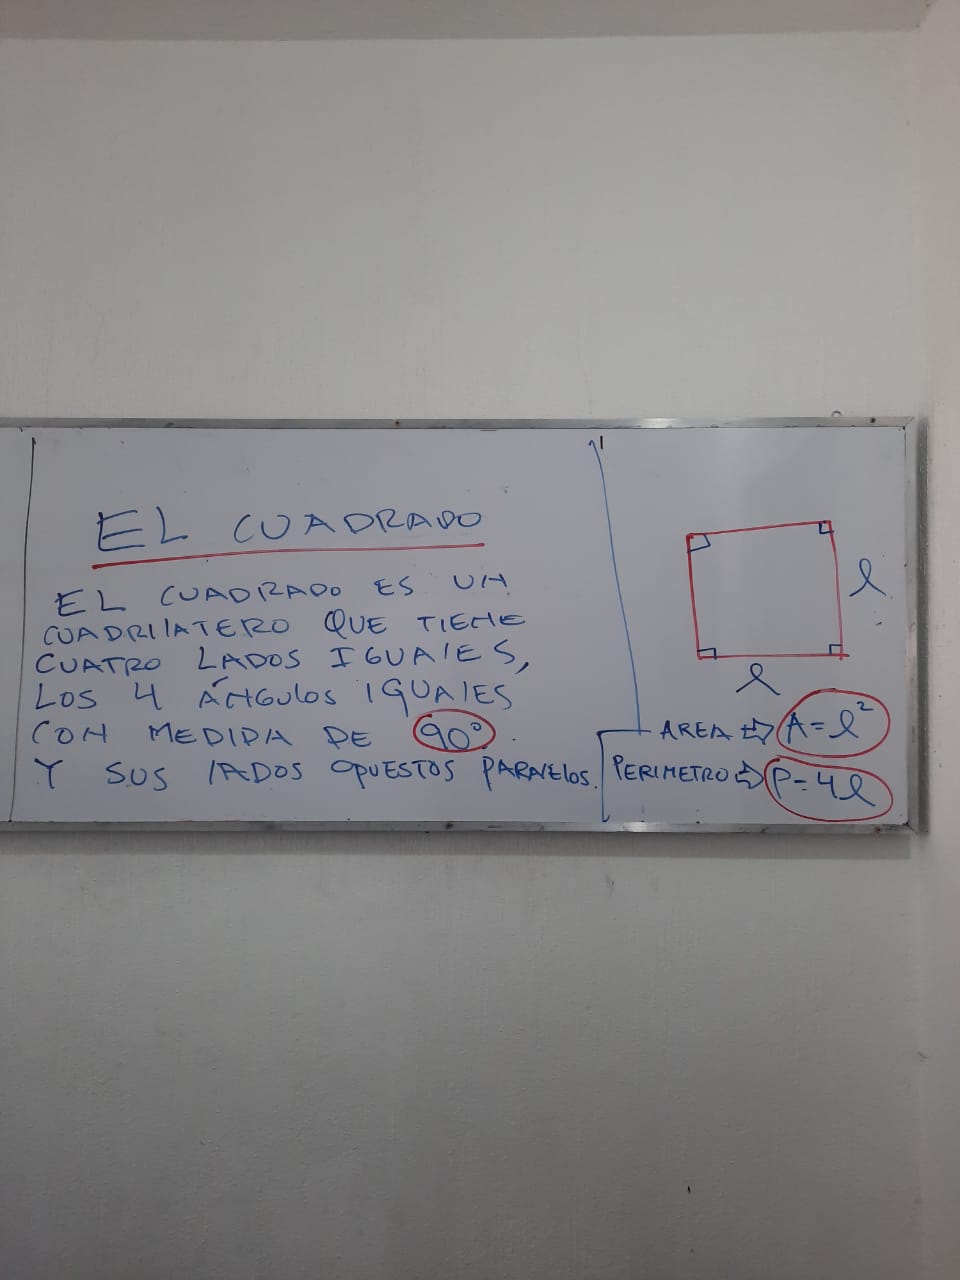 EL CUADRADO
EL CUADRADO ES UN
CUADRILATERO QUE TIENE
CUATRO LADOS IGUALES,
LOS 4 ÁNGULOS IGUALES
CON MEDIDA DE 90°.
Y SUS LADOS OPUESTOS PARALELOS.
l
l
AREA ⇨ A=l²
PERIMETRO ⇨ P=4l